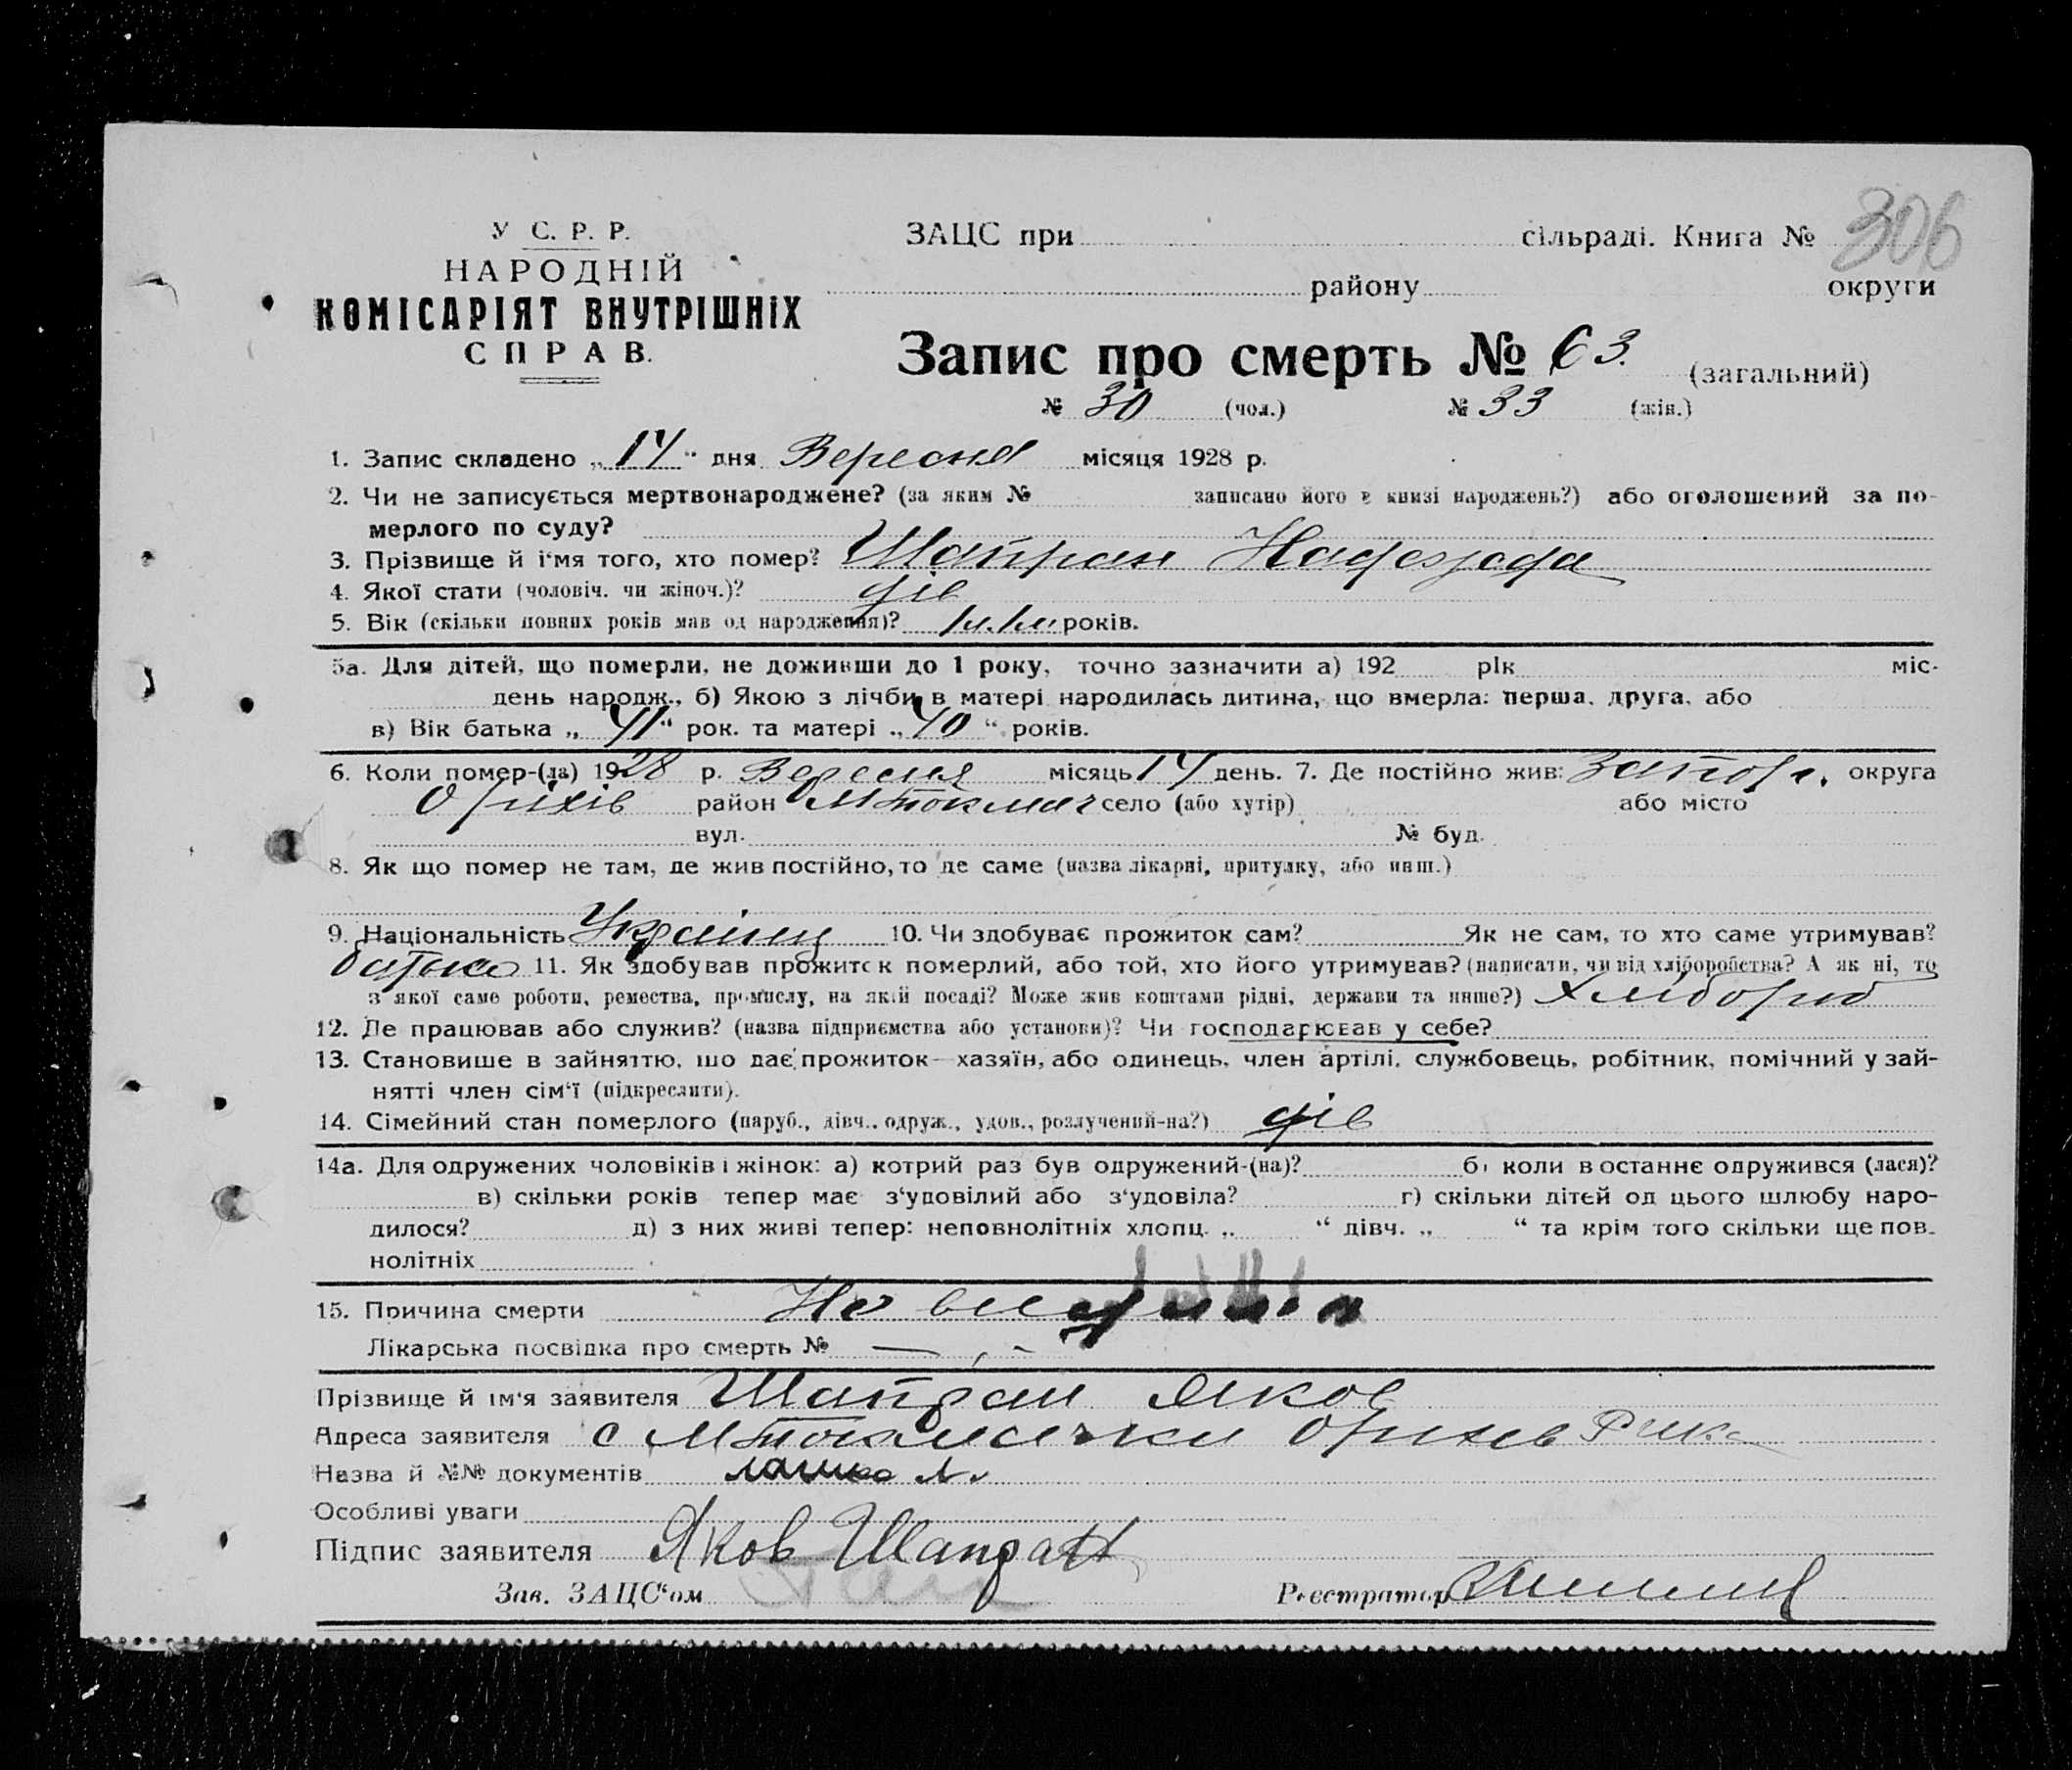 306
У С. Р. Р.
НАРОДНІЙ
КОМІСАРІЯТ ВНУТРІШНІХ
СПРАВ.
ЗАЦС при сільраді. Книга №
району округи
Запис про смерть № 63. (загальний)
№ 30 (чол.) № 33 (жін.)
1. Запис складено „14" дня Вересня місяця 1928 р.
2. Чи не записується мертвонароджене? (за яким № записано його в книзі народжень?) або оголошений за по-
мерлого по суду?
3. Прізвище й і'мя того, хто помер? Шапран Надежда
4. Якої стати (чоловіч. чи жіноч.)? дів
5. Вік (скільки повних років мав од народження)? років.
5а. Для дітей, що померли, не доживши до 1 року, точно зазначити а) 192 рік міс.
день народж., б) Якою з лічби в матері народилась дитина, що вмерла: перша, друга, або
в) Вік батька „41" рок. та матері „40" років.
6. Коли помер-(ла) 1928 р. Вересня місяць 14 день. 7. Де постійно жив: Запор. округа
Оріхів район М Токмач село (або хутір) або місто
вул. № буд.
8. Як що помер не там, де жив постійно, то де саме (назва лікарні, притулку, або инш.)
9. Національність Українц 10. Чи здобуває прожиток сам? Як не сам, то хто саме утримував?
батько 11. Як здобував прожиток померлий, або той, хто його утримував? (написати, чи від хліборобства? А як ні, то
з якої саме роботи, ремества, промислу, на якій посаді? Може жив коштами рідні, держави та инше?) Хлібороб
12. Де працював або служив? (назва підприємства або установи)? Чи господарював у себе?
13. Становише в зайняттю, що дає прожиток—хазяїн, або одинець, член артілі, службовець, робітник, помічний у зай-
нятті член сім'ї (підкреслити).
14. Сімейний стан померлого (паруб., дівч., одруж., удов., розлучений-на?) дів
14а. Для одружених чоловіків і жінок: а) котрий раз був одружений-(на)? б) коли востаннє одружився (лася)?
в) скільки років тепер має з'удовілий або з'удовіла? г) скільки дітей од цього шлюбу наро-
дилося? д) з них живі тепер: неповнолітніх хлопц. „ " дівч. „ " та крім того скільки ще пов-
нолітніх
15. Причина смерти
Лікарська посвідка про смерть № —
Прізвище й ім'я заявителя Шапран Яков
Адреса заявителя с М Токмачки Оріхів
Назва й №№ документів
Особливі уваги
Підпис заявителя Яков Шапран
Зав. ЗАЦС'ом
Реєстратор